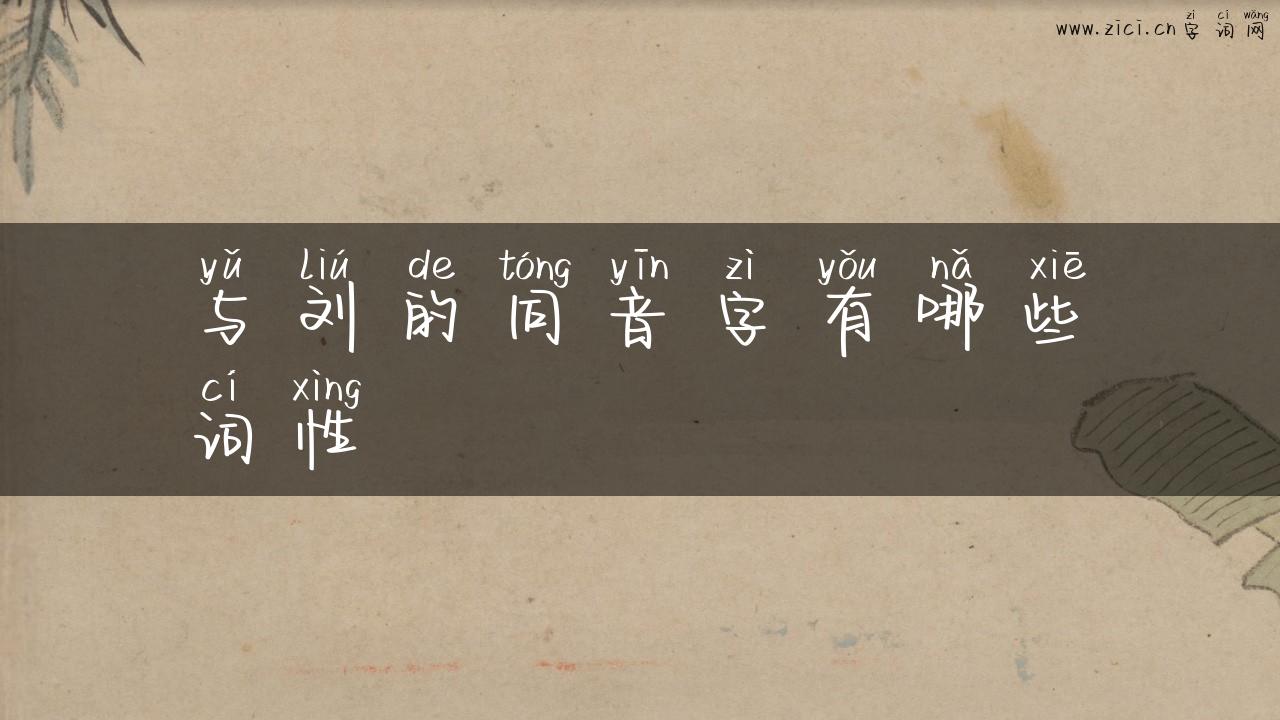 zì cí wǎng
www.zici.cn 字词网
yǔ liú de tóng yīn zì yǒu nǎ xiē
与刘的同音字有哪些
cí xìng
词性